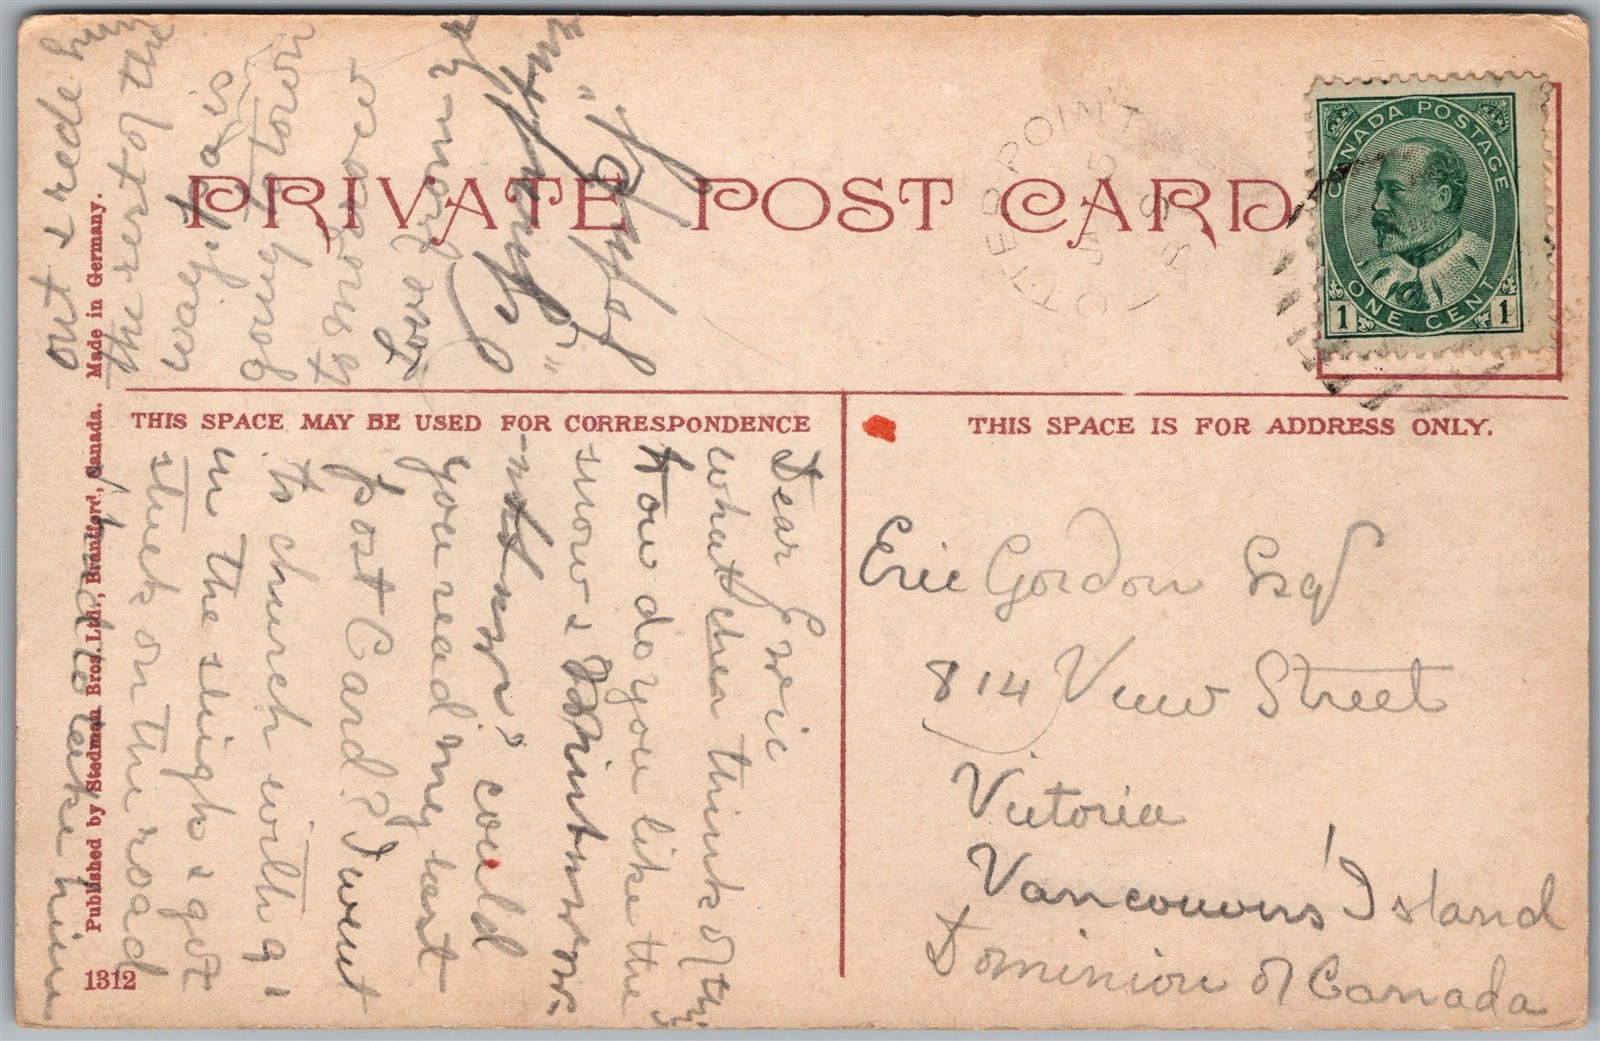 PRIVATE POST CARD
CANADA POSTAGE
ONE CENT
1 1
OTTER POINT
JA 5
THIS SPACE MAY BE USED FOR CORRESPONDENCE
THIS SPACE IS FOR ADDRESS ONLY.
Published by Stedman Bros. Ltd., Brantford, Canada. Made in Germany.
1312
Eric Gordon Esq
814 View Street
Victoria
Vancouvers' Island
Dominion of Canada
Dear Eric
what cher think of thy
How do you like the
snow &
could
you read my last
post Card? I went
to church with
in the sleigh & got
stuck on the road
& had to take him
out & rede
the rest of the
way. pa is
going town
tomorow
my most
love